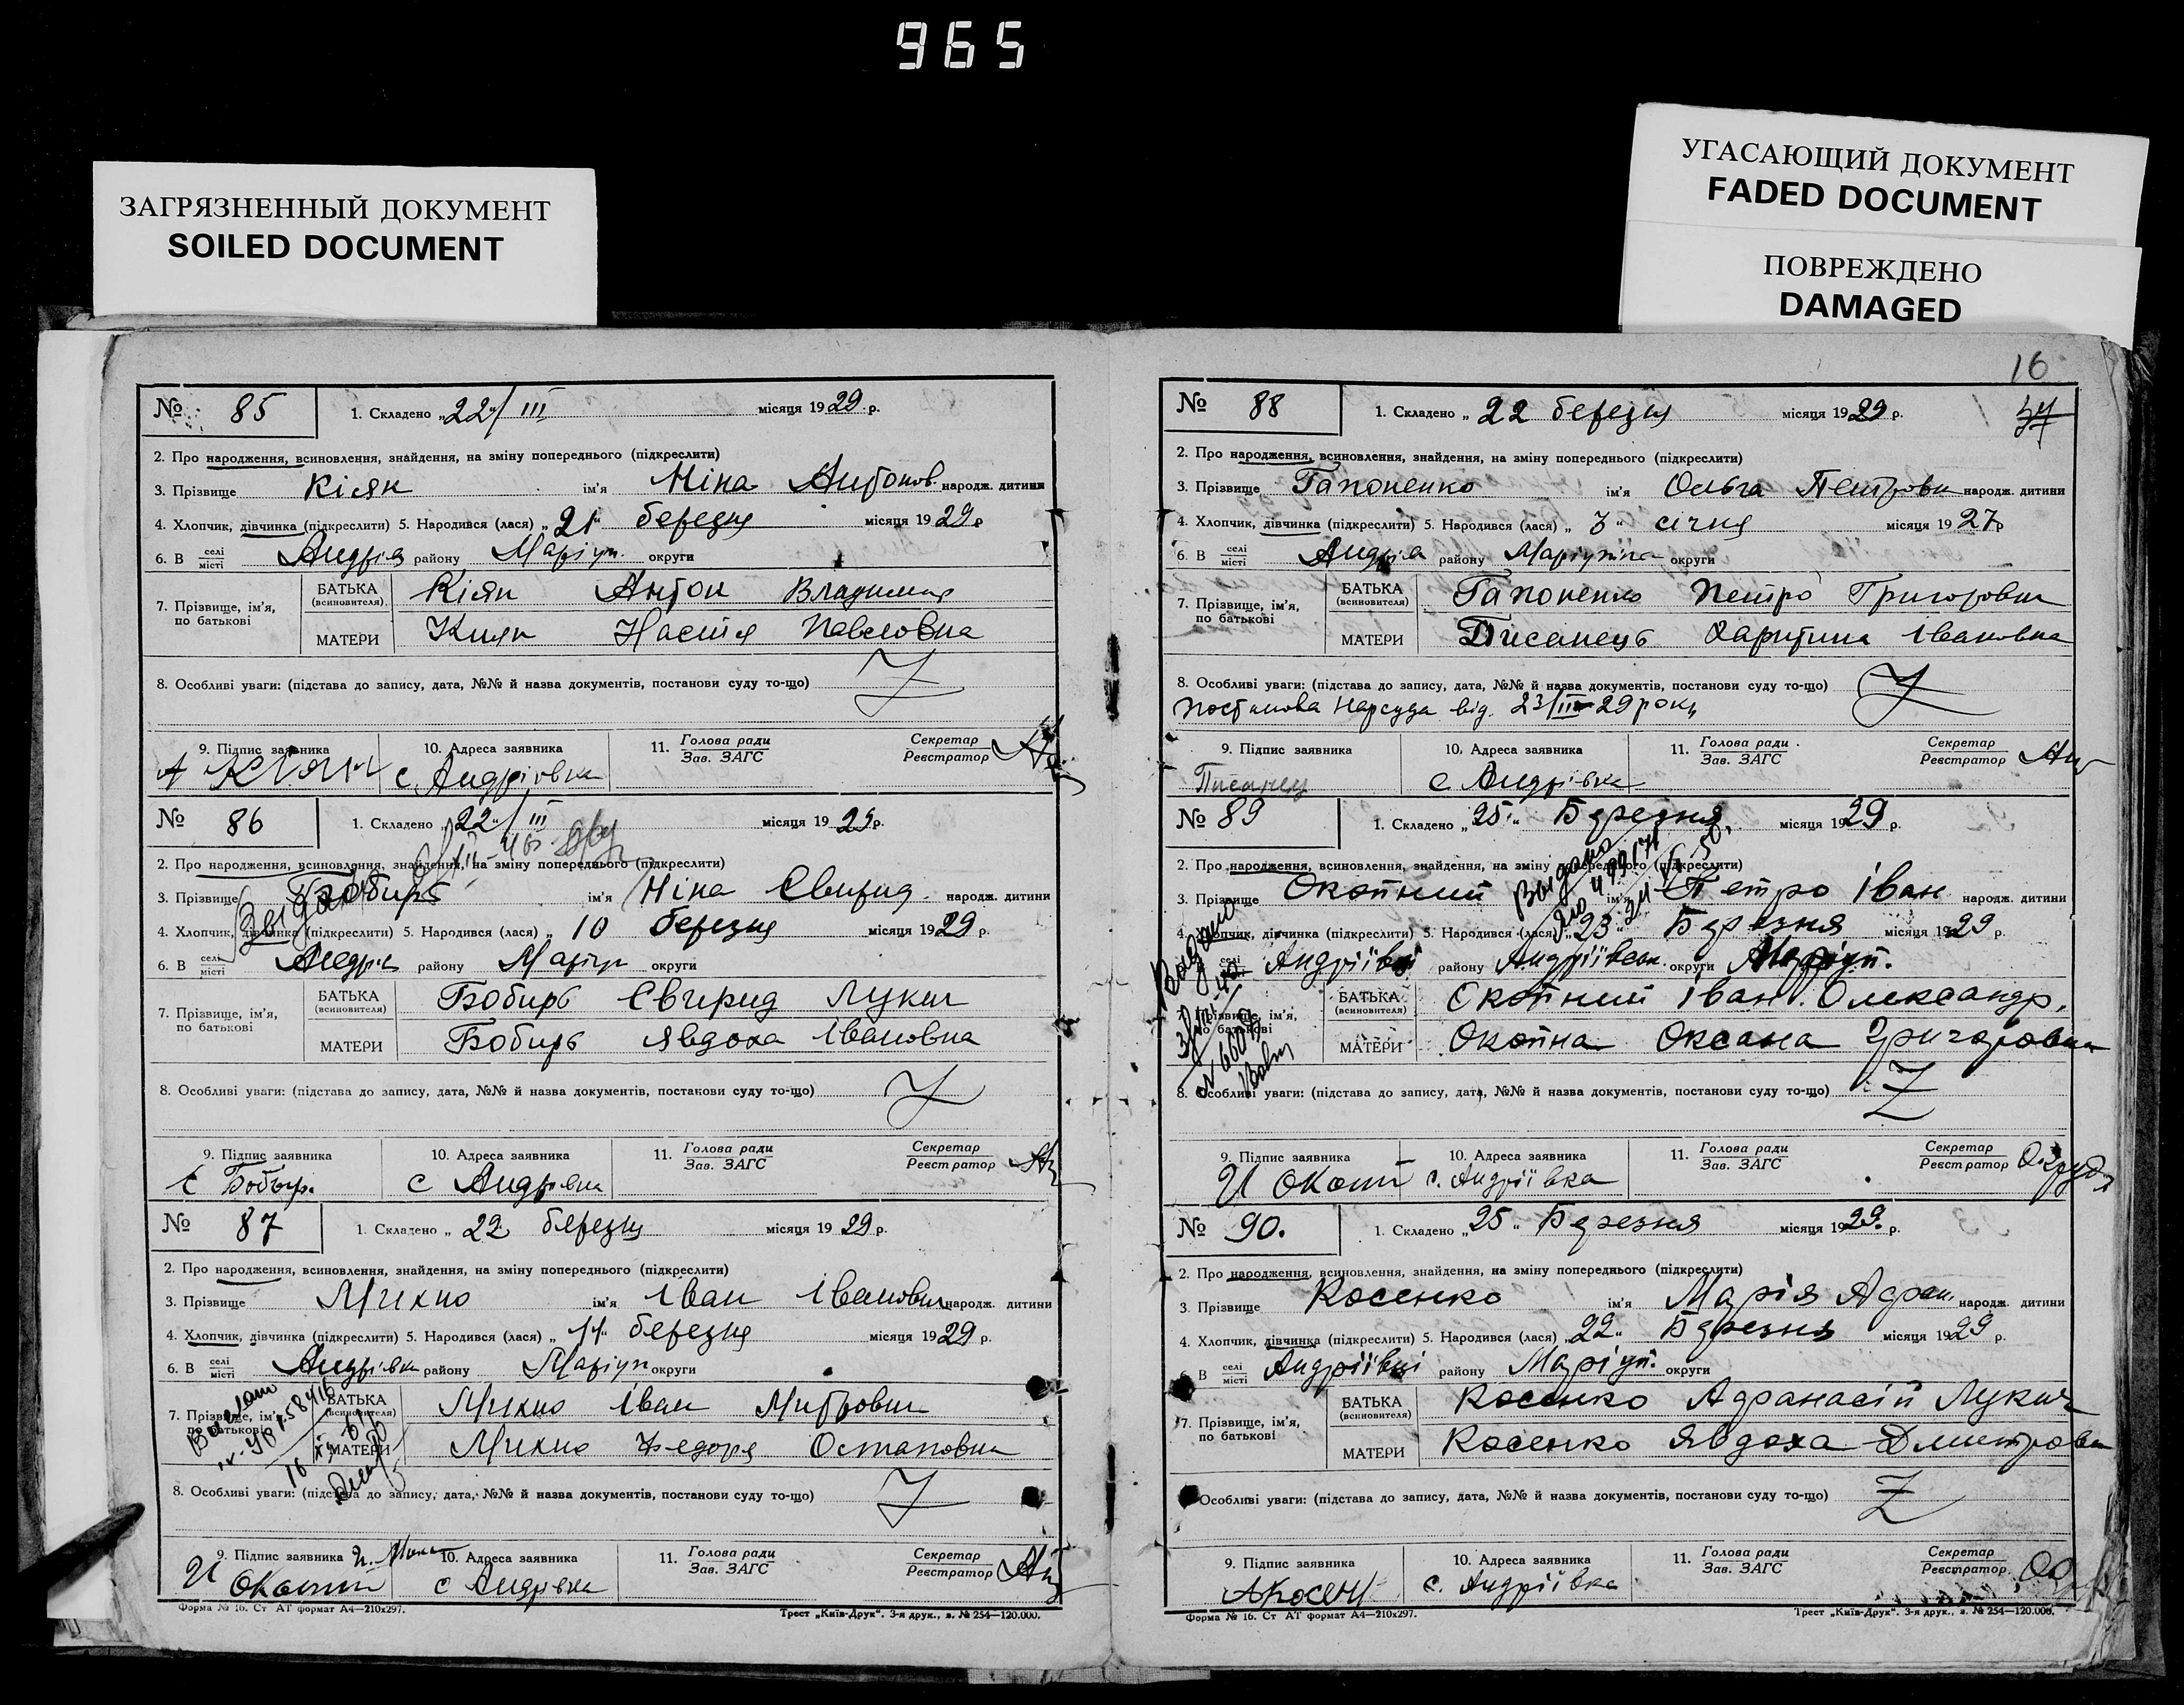 965
ЗАГРЯЗНЕННЫЙ ДОКУМЕНТ
SOILED DOCUMENT
УГАСАЮЩИЙ ДОКУМЕНТ
FADED DOCUMENT
ПОВРЕЖДЕНО
DAMAGED
№ 85 1. Складено „22"/III місяця 1929 р.
2. Про народження, всиновлення, знайдення, на зміну попереднього (підкреслити)
3. Прізвище Кіян ім'я Ніна Антонов. народж. дитини
4. Хлопчик, дівчинка (підкреслити) 5. Народився (лася) „21" березня місяця 1929 р
6. В селі місті Андрів району Маріуп. округи
7. Прізвище, ім'я, по батькові
БАТЬКА (всиновителя) Кіян Антон Владимир
МАТЕРИ Киян Настя Павловна
8. Особливі уваги: (підстава до запису, дата, №№ й назва документів, постанови суду то-що) Z
9. Підпис заявника 10. Адреса заявника 11. Голова ради Зав. ЗАГС Секретар Реєстратор
А Кіян с Андрівка
№ 86 1. Складено „22"/III місяця 1929 р.
2. Про народження, всиновлення, знайдення, на зміну попереднього (підкреслити)
3. Прізвище Бобирь ім'я Ніна Свирид. народж. дитини
Выдано
4. Хлопчик, дівчинка (підкреслити) 5. Народився (лася) „ 10 березня місяця 1929 р.
6. В селі місті Андрів району Маріуп округи
7. Прізвище, ім'я, по батькові
БАТЬКА (всиновителя) Бобирь Свирид Лукич
МАТЕРИ Бобирь Явдоха Івановна
8. Особливі уваги: (підстава до запису, дата, №№ й назва документів, постанови суду то-що) Z
9. Підпис заявника 10. Адреса заявника 11. Голова ради Зав. ЗАГС Секретар Реєстратор
С Бобыр. с Андрівка
№ 87 1. Складено „ 22 березня місяця 1929 р.
2. Про народження, всиновлення, знайдення, на зміну попереднього (підкреслити)
3. Прізвище Михно ім'я Іван Іванович народж. дитини
4. Хлопчик, дівчинка (підкреслити) 5. Народився (лася) „ 11" березня місяця 1929 р.
6. В селі місті Андрівка району Маріуп округи
7. Прізвище, ім'я, по батькові
БАТЬКА (всиновителя) Михно Іван Митрович
МАТЕРИ Михно Федоря Остаповна
8. Особливі уваги: (підстава до запису, дата, №№ й назва документів, постанови суду то-що) Z
9. Підпис заявника 10. Адреса заявника 11. Голова ради Зав. ЗАГС Секретар Реєстратор
с Андрівка
Форма № 16. Ст АТ формат А4—210x297. Трест „Київ-Друк". 3-я друк., з. № 254—120.000.
16
№ 88 1. Складено „ 22 березня місяця 1929 р.
2. Про народження, всиновлення, знайдення, на зміну попереднього (підкреслити)
3. Прізвище Гапоненко ім'я Ольга Петровн народж. дитини
4. Хлопчик, дівчинка (підкреслити) 5. Народився (лася) „ 3 " січня місяця 1927 р
6. В селі місті Андрів району Маріупіл округи
7. Прізвище, ім'я, по батькові
БАТЬКА (всиновителя) Гапоненко Петро Григорович
МАТЕРИ Писанець Харитина Івановна
8. Особливі уваги: (підстава до запису, дата, №№ й назва документів, постанови суду то-що) Z
Постанова Нарсуда від. 23/III-29 року
9. Підпис заявника 10. Адреса заявника 11. Голова ради Зав. ЗАГС Секретар Реєстратор
Писанец с Андрівка
№ 89 1. Складено „25" Березня місяця 1929 р.
2. Про народження, всиновлення, знайдення, на зміну попереднього (підкреслити)
Выдано
3. Прізвище Окопний ім'я Петро Іван народж. дитини
4. Хлопчик, дівчинка (підкреслити) 5. Народився (лася) „23" Березня місяця 1929 р.
Выдано
6. В селі місті Андріївці району Андріївськ. округи Маріуп.
7. Прізвище, ім'я, по батькові
БАТЬКА (всиновителя) Окопний Іван Олександр.
МАТЕРИ Окопна Оксана Григоровна
8. Особливі уваги: (підстава до запису, дата, №№ й назва документів, постанови суду то-що) Z
9. Підпис заявника 10. Адреса заявника 11. Голова ради Зав. ЗАГС Секретар Реєстратор
И Окопн с. Андріївка
№ 90. 1. Складено „25 " Березня місяця 1929. р.
2. Про народження, всиновлення, знайдення, на зміну попереднього (підкреслити)
3. Прізвище Косенко ім'я Марія Афан. народж. дитини
4. Хлопчик, дівчинка (підкреслити) 5. Народився (лася) „22" Березня місяця 1929 р.
6. В селі місті Андріївці району Маріуп. округи
7. Прізвище, ім'я, по батькові
БАТЬКА (всиновителя) Косенко Афанасій Лукич
МАТЕРИ Косенко Явдоха Дмитровн
8. Особливі уваги: (підстава до запису, дата, №№ й назва документів, постанови суду то-що) Z
9. Підпис заявника 10. Адреса заявника 11. Голова ради Зав. ЗАГС Секретар Реєстратор
АКосен с. Андріївка
Форма № 16. Ст АТ формат А4—210x297. Трест „Київ-Друк". 3-я друк., з. № 254—120.000.